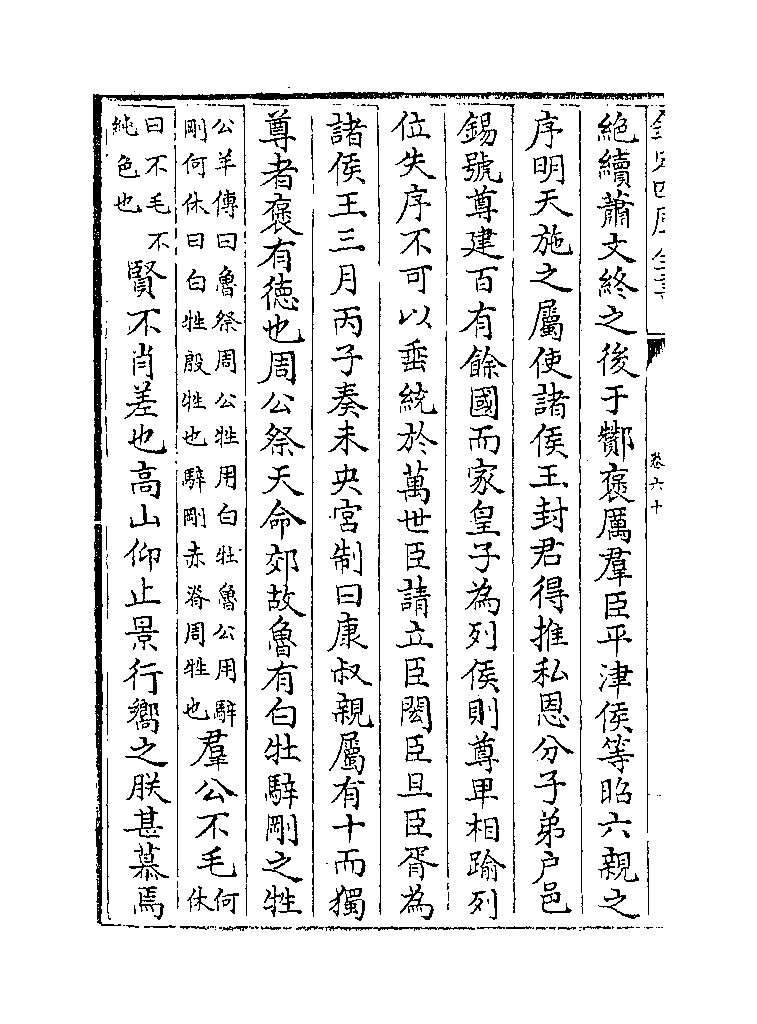 欽定四庫全書
卷六十
絶續蕭文終之後于酇褒厲羣臣平津侯等昭六親之
序明天施之屬使諸侯王封君得推私恩分子弟户邑
錫號尊建百有餘國而家皇子為列侯則尊卑相踰列
位失序不可以垂統於萬世臣請立臣閎臣旦臣胥為
諸侯王三月丙子奏未央宮制曰康叔親屬有十而獨
尊者褒有德也周公祭天命郊故魯有白牡騂剛之牲
公羊傳曰魯祭周公牲用白牡魯公用騂
剛何休曰白牲殷牲也騂剛赤脊周牲也
羣公不毛
何
休
曰不毛不
純色也
賢不肖差也高山仰止景行嚮之朕甚慕焉